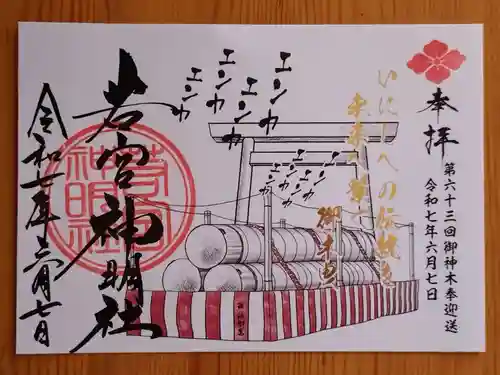 奉拝
第六十三回御神木奉迎送
令和七年六月七日
いにしへの伝統を
未来へ繋ぐ
御木曳
エンヤ
エンヤ
エンヤ
エンヤ
エンヤ
エンヤ
エンヤ
エンヤ
若宮神明社
若宮神明社
令和七年六月七日